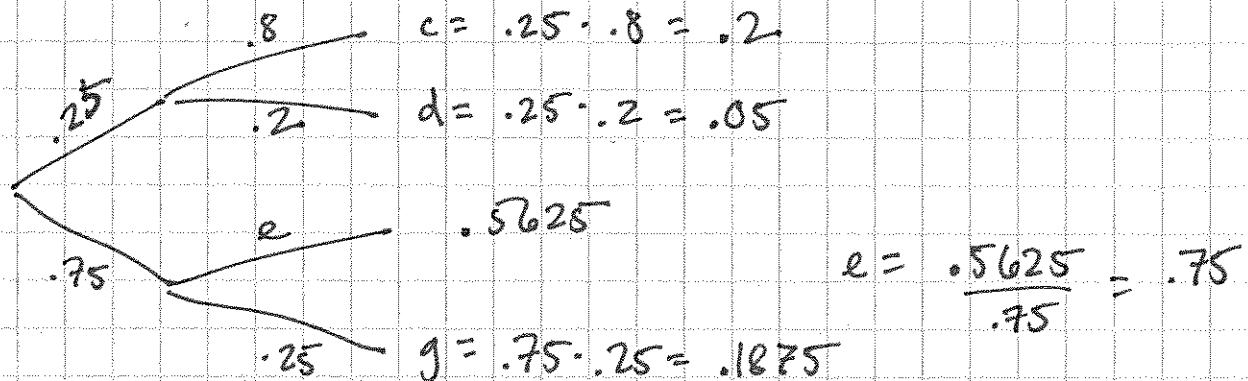 .8 c = .25 · .8 = .2
.25
.2 d = .25 · .2 = .05
e .5625
.75
e = .5625 / .75 = .75
.25 g = .75 · .25 = .1875